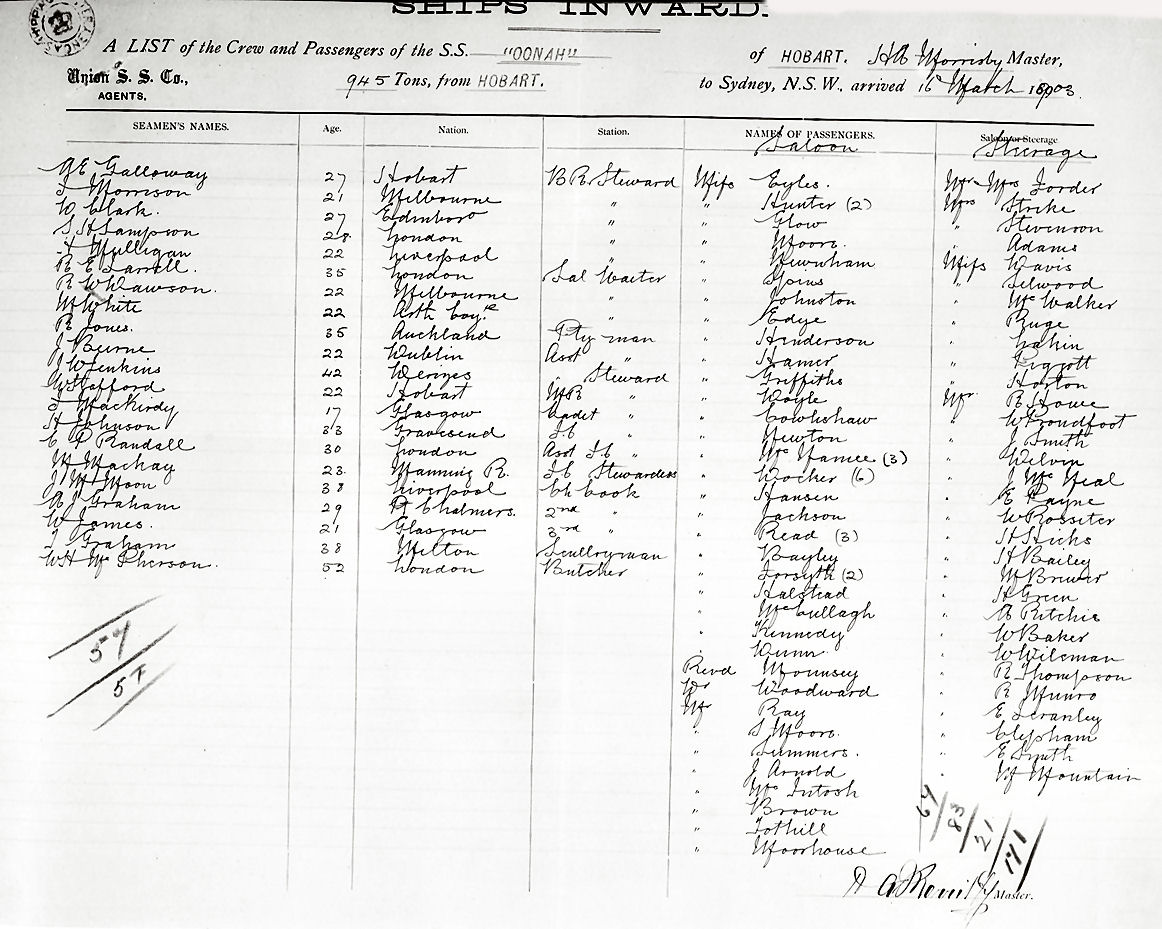 SHIPS INWARD.
A LIST of the Crew and Passengers of the S.S. "OONAH" of HOBART. Master,
Union S. S. Co., 945 Tons, from HOBART. to Sydney, N.S.W., arrived 16 March 1903.
AGENTS.
SEAMEN'S NAMES. Age. Nation. Station. NAMES OF PASSENGERS. Saloon or Steerage
Saloon Steerage
Galloway 27 Hobart B R Steward Miss Eyles. Mr Mrs Forder
Morrison 21 Melbourne " " Hunter (2) Mrs Strike
W Clark. 27 Edinboro " " Glow " Stevenson
S H Sampson 28 London " " Moore. " Adams
Mulligan 22 Liverpool " " Newnham Miss Davis
R E Farrell. 35 London Sal Waiter " Spins " Selwood
R W Dawson. 22 Melbourne " " Johnston " Mc Walker
M White 22 " " Edye " Ruge
R Jones. 35 Auckland Pty man " Henderson " Eakin
J Beirne 22 Dublin Asst " " Hamer " Piggott
J W Jenkins 42 Steward " Griffiths " Horton
W Stafford 22 Hobart " " Doyle Mr R Howe
J MacKirdy 17 Glasgow Cadet " " Cowlishaw " W Proudfoot
H Johnson 33 Gravesend " " Newton " J Smith
C P Randall 30 London Asst " " Mc Namee (3) " Wilvin
M Mackay 23 Manning R. Stewardess " Docker (6) " J Mc Neal
J M Moon 38 Liverpool Ch Cook " Hansen " E Payne
Graham 29 P Chalmers. 2nd " " Jackson " W Rossiter
W James. 21 Glasgow 3rd " " Read (3) " H Hicks
J Graham 38 Milton Sculleryman " Bayley " H Bailey
W H Mc Pherson. 52 London Butcher " Forsyth (2) " M Brewer
" Halstead " H Green
" McCullagh " A Ritchie
" Kennedy " W Baker
" Dunn. " W Wileman
Revd Mounsey " R Thompson
Dr Woodward " R Munro
Mr Ray " E Scranley
" S Moore. " Clepham
" Summers. " E Smith
" J Arnold " M Mountain
" Mc Intosh
" Brown
" Tothill
" Moorhouse
57
57
64/83/21/171
Master.